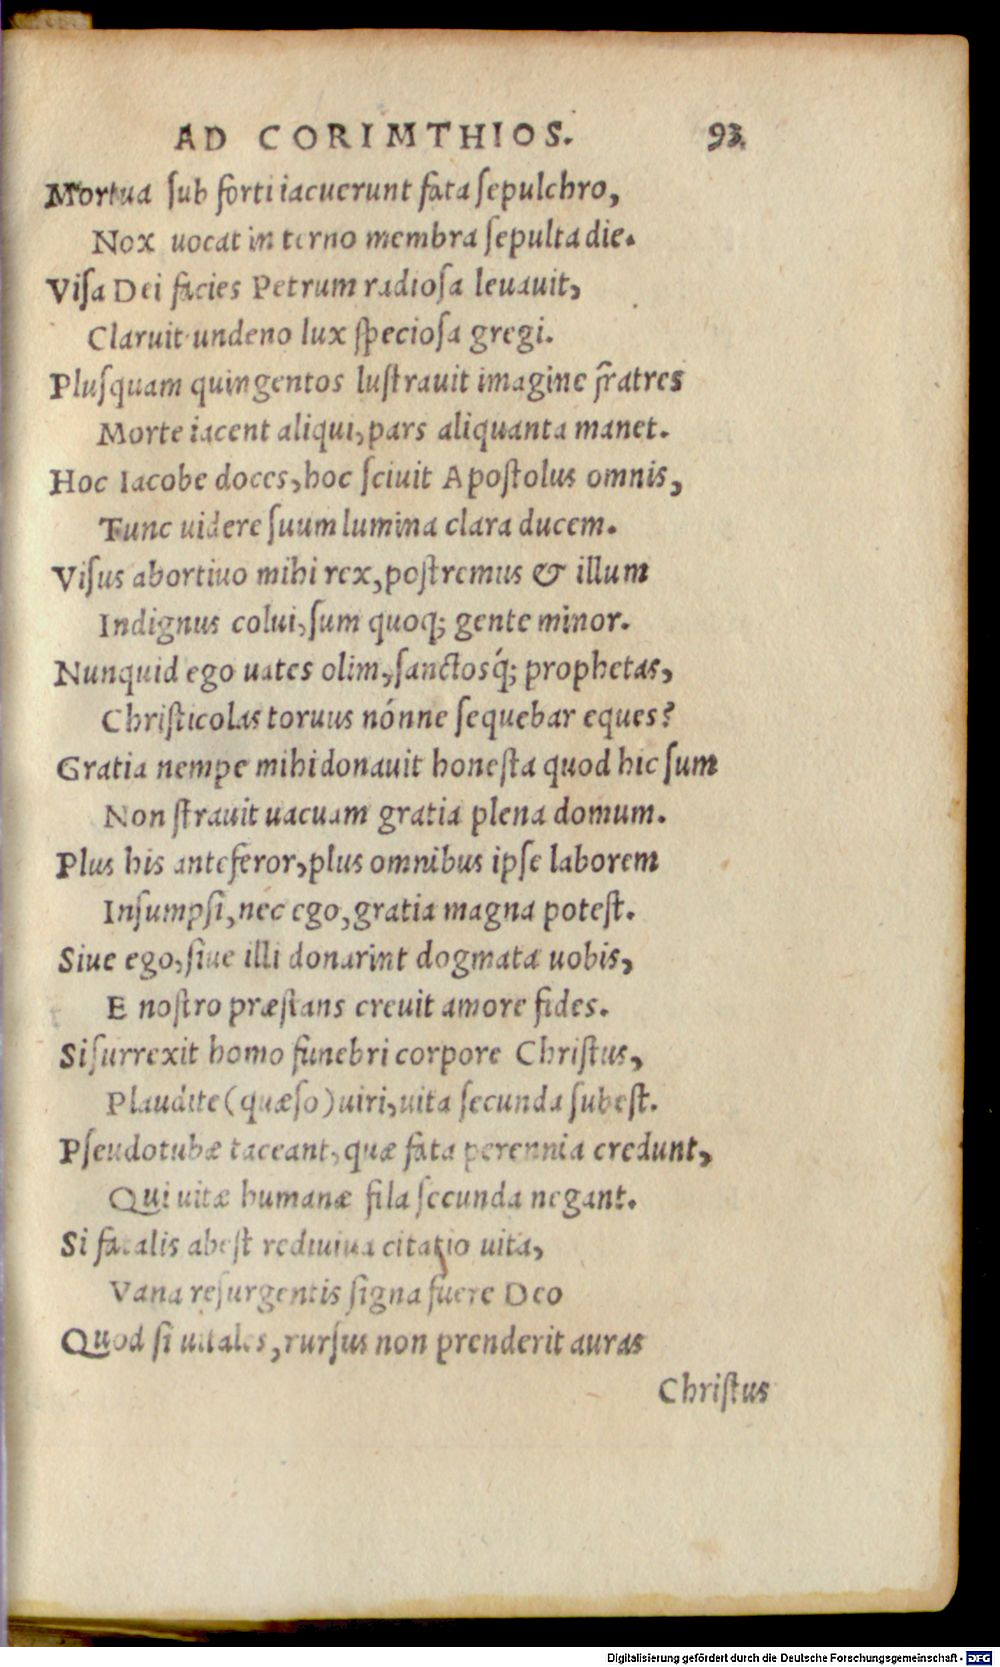 AD CORIMTHIOS. 93.
Mortua sub forti iacuerunt fata sepulchro,
Nox uocat in terno membra sepulta die.
Visa Dei facies Petrum radiosa leuauit,
Claruit undeno lux speciosa gregi.
Plusquam quingentos lustrauit imagine fratres
Morte iacent aliqui, pars aliquanta manet.
Hoc Iacobe doces, hoc sciuit Apostolus omnis,
Tunc uidere suum lumina clara ducem.
Visus abortiuo mihi rex, postremus & illum
Indignus colui, sum quoq; gente minor.
Nunquid ego uates olim, sanctosq́; prophetas,
Christicolas toruus nónne sequebar eques?
Gratia nempe mihi donauit honesta quod hic sum
Non strauit uacuam gratia plena domum.
Plus his anteferor, plus omnibus ipse laborem
Insumpsi, nec ego, gratia magna potest.
Siue ego, siue illi donarint dogmata uobis,
E nostro præstans creuit amore fides.
Si surrexit homo funebri corpore Christus,
Plaudite (quæso) uiri, uita secunda subest.
Pseudotubæ taceant, quæ fata perennia credunt,
Qui uitæ humanæ fila secunda negant.
Si fatalis abest rediuiua citatio uita,
Vana resurgentis signa fuere Deo
Quod si uitales, rursus non prenderit auras
Christus
Digitalisierung gefördert durch die Deutsche Forschungsgemeinschaft - DFG